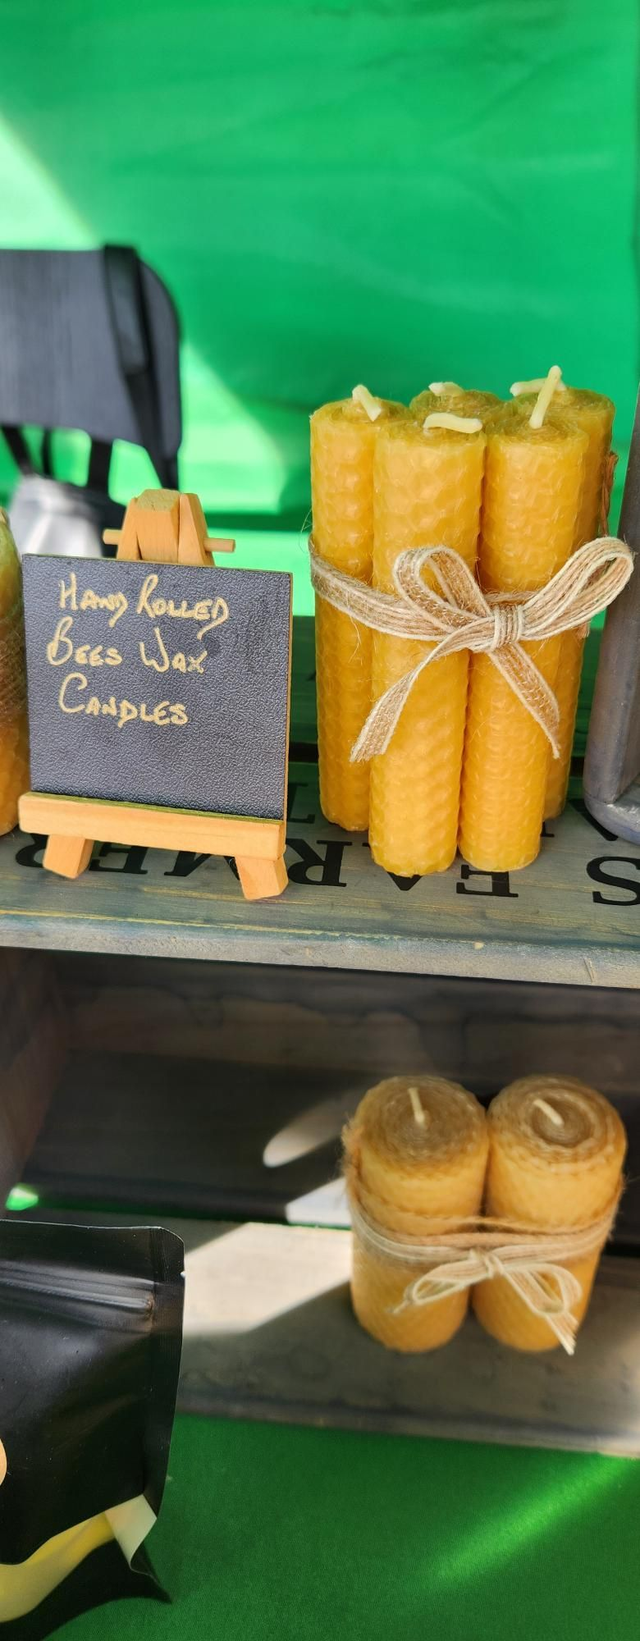 Hand Rolled
Bees Wax
Candles
FARMER S